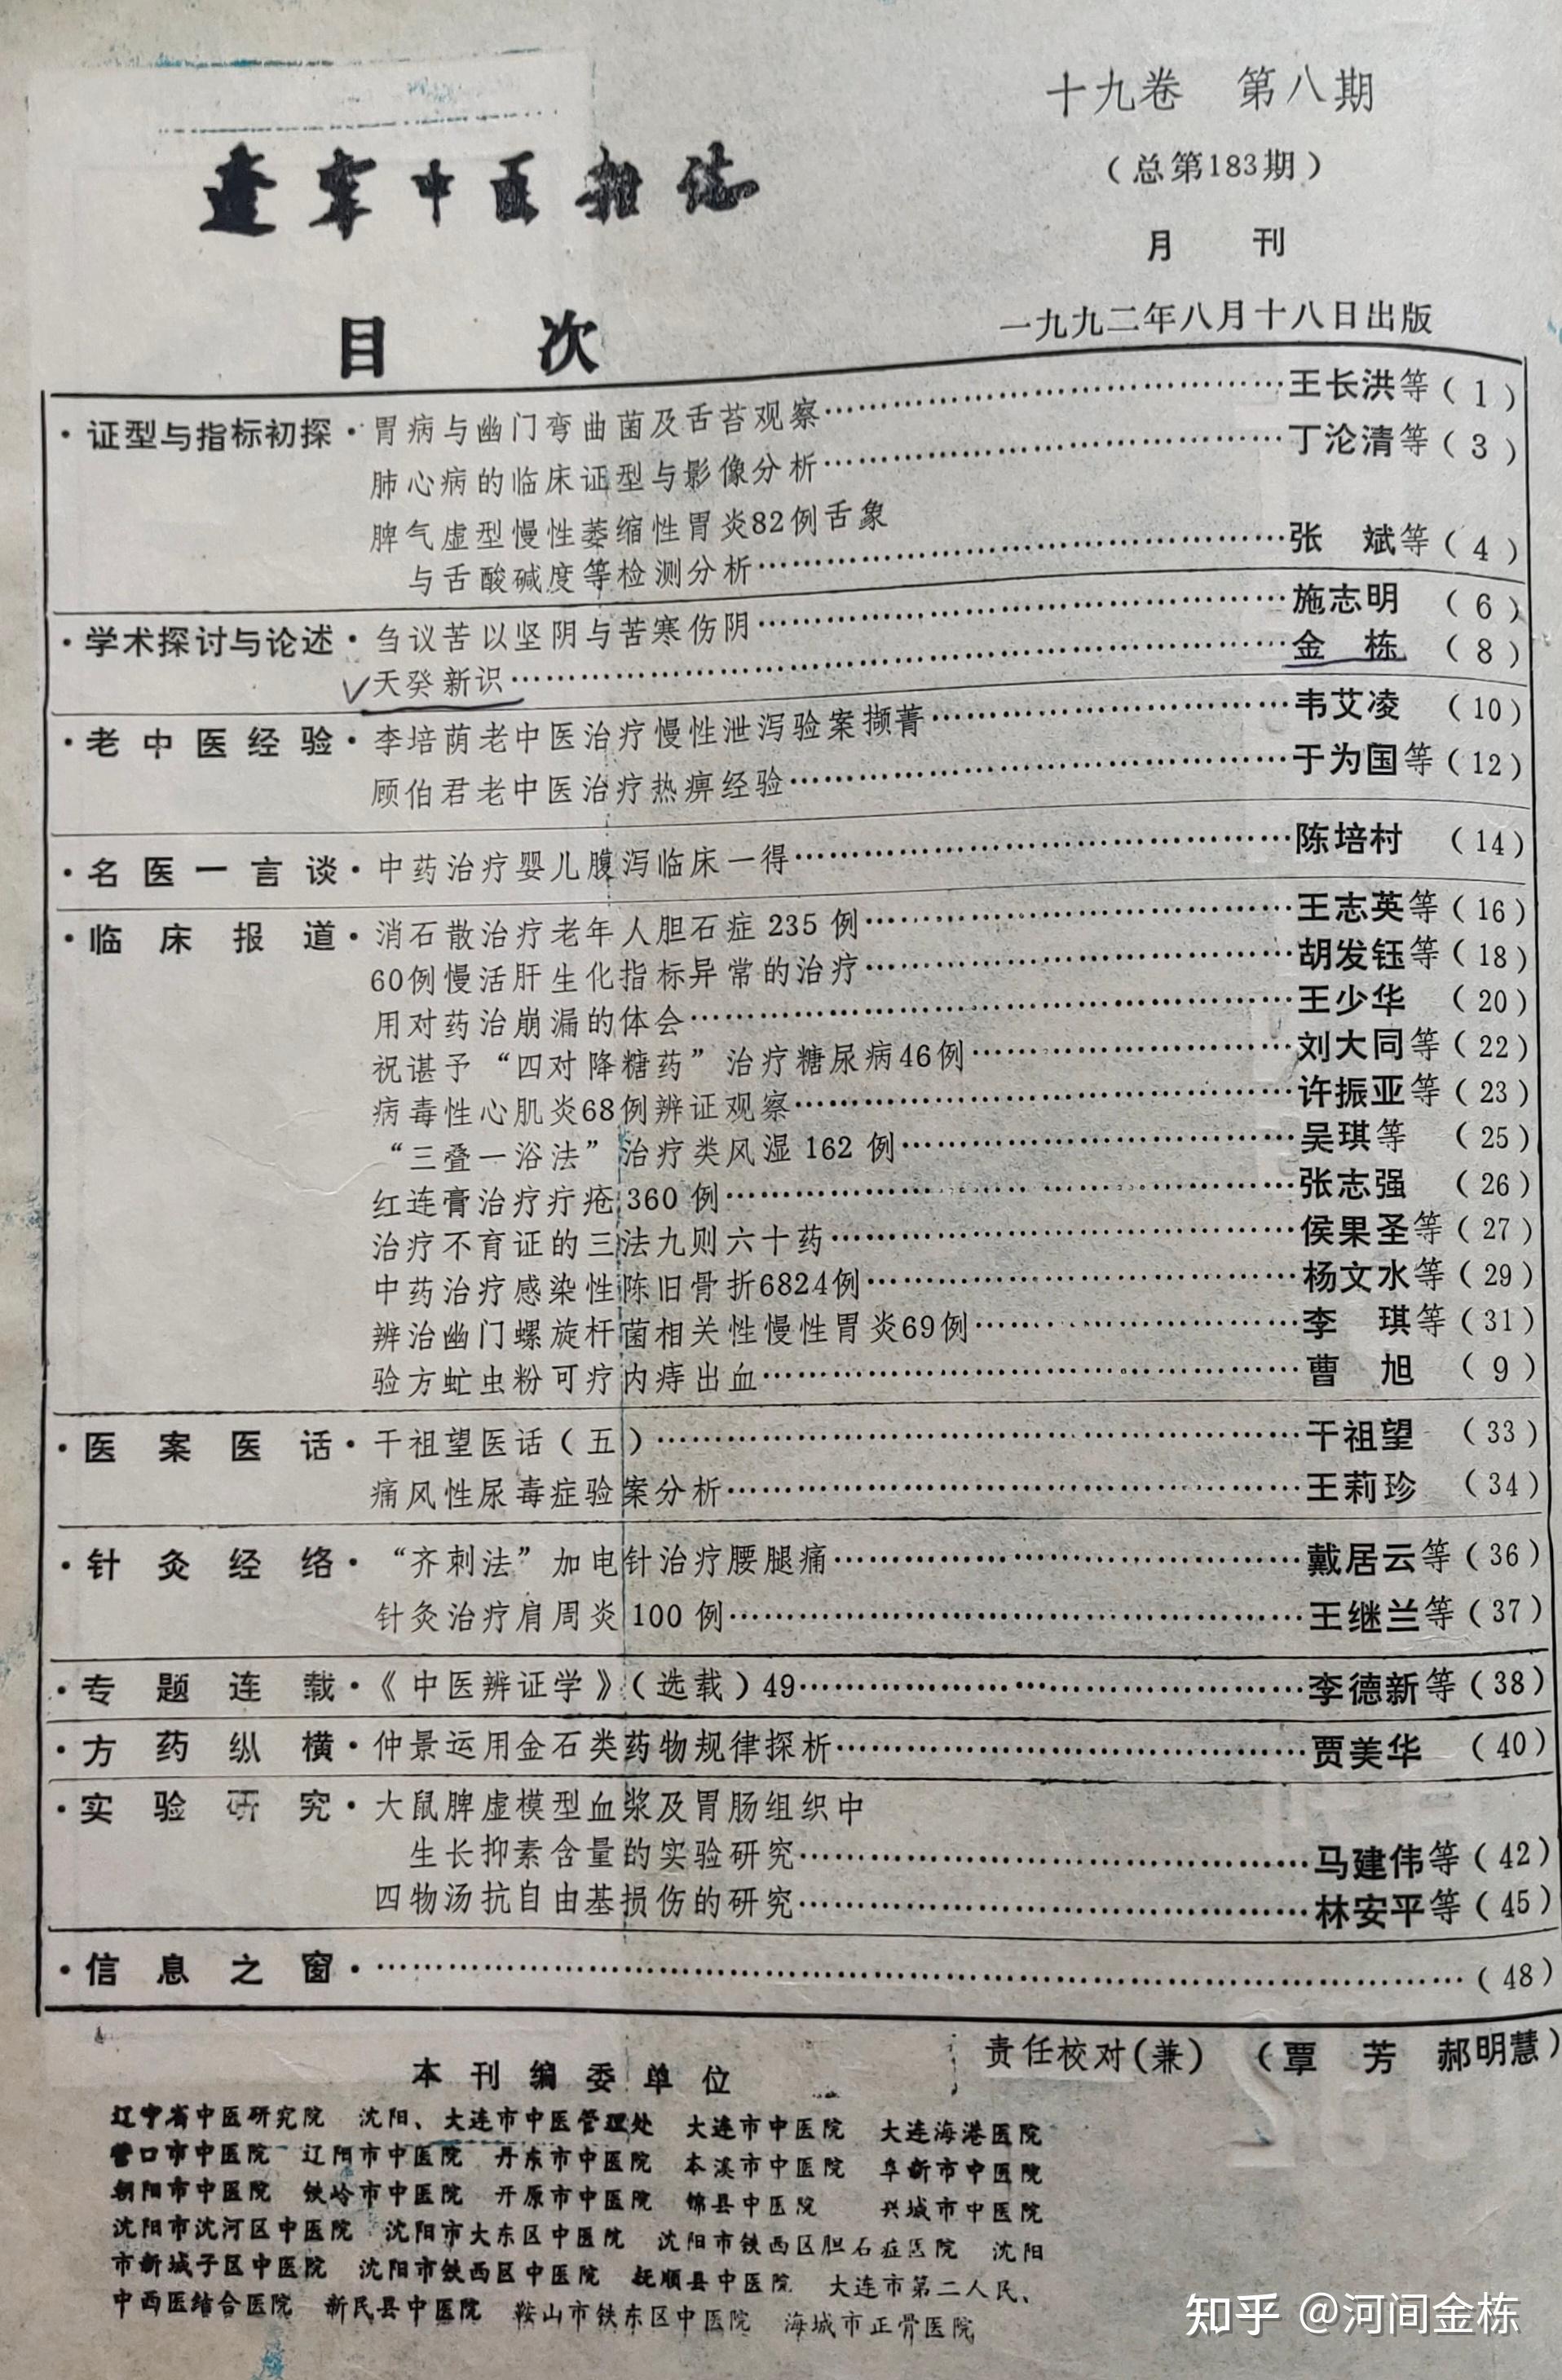 十九卷 第八期
(总第183期)
辽宁中医杂志
月 刊
目 次
一九九二年八月十八日出版
·证型与指标初探·胃病与幽门弯曲菌及舌苔观察……王长洪等(1)
肺心病的临床证型与影像分析……丁沦清等(3)
脾气虚型慢性萎缩性胃炎82例舌象
与舌酸碱度等检测分析……张 斌等(4)
·学术探讨与论述·刍议苦以坚阴与苦寒伤阴……施志明(6)
√天癸新识……金 栋(8)
·老中医经验·李培荫老中医治疗慢性泄泻验案撷菁……韦艾凌(10)
顾伯君老中医治疗热痹经验……于为国等(12)
·名医一言谈·中药治疗婴儿腹泻临床一得……陈培村(14)
·临床报道·消石散治疗老年人胆石症235例……王志英等(16)
60例慢活肝生化指标异常的治疗……胡发钰等(18)
用对药治崩漏的体会……王少华(20)
祝谌予“四对降糖药”治疗糖尿病46例……刘大同等(22)
病毒性心肌炎68例辨证观察……许振亚等(23)
“三叠一浴法”治疗类风湿162例……吴琪等(25)
红连膏治疗疔疮360例……张志强(26)
治疗不育证的三法九则六十药……侯果圣等(27)
中药治疗感染性陈旧骨折6824例……杨文水等(29)
辨治幽门螺旋杆菌相关性慢性胃炎69例……李 琪等(31)
验方虻虫粉可疗内痔出血……曹 旭(9)
·医案医话·干祖望医话(五)……干祖望(33)
痛风性尿毒症验案分析……王莉珍(34)
·针灸经络·“齐刺法”加电针治疗腰腿痛……戴居云等(36)
针灸治疗肩周炎100例……王继兰等(37)
·专题连载·《中医辨证学》(选载)49……李德新等(38)
·方药纵横·仲景运用金石类药物规律探析……贾美华(40)
·实验研究·大鼠脾虚模型血浆及胃肠组织中
生长抑素含量的实验研究……马建伟等(42)
四物汤抗自由基损伤的研究……林安平等(45)
·信息之窗·……(48)
责任校对(兼) (覃 芳 郝明慧)
本刊编委单位
辽宁省中医研究院 沈阳、大连市中医管理处 大连市中医院 大连海港医院
营口市中医院 辽阳市中医院 丹东市中医院 本溪市中医院 阜新市中医院
朝阳市中医院 铁岭市中医院 开原市中医院 锦县中医院 兴城市中医院
沈阳市沈河区中医院 沈阳市大东区中医院 沈阳市铁西区胆石症医院 沈阳
市新城子区中医院 沈阳市铁西区中医院 抚顺县中医院 大连市第二人民、
中西医结合医院 新民县中医院 鞍山市铁东区中医院 海城市正骨医院
知乎 @河间金栋